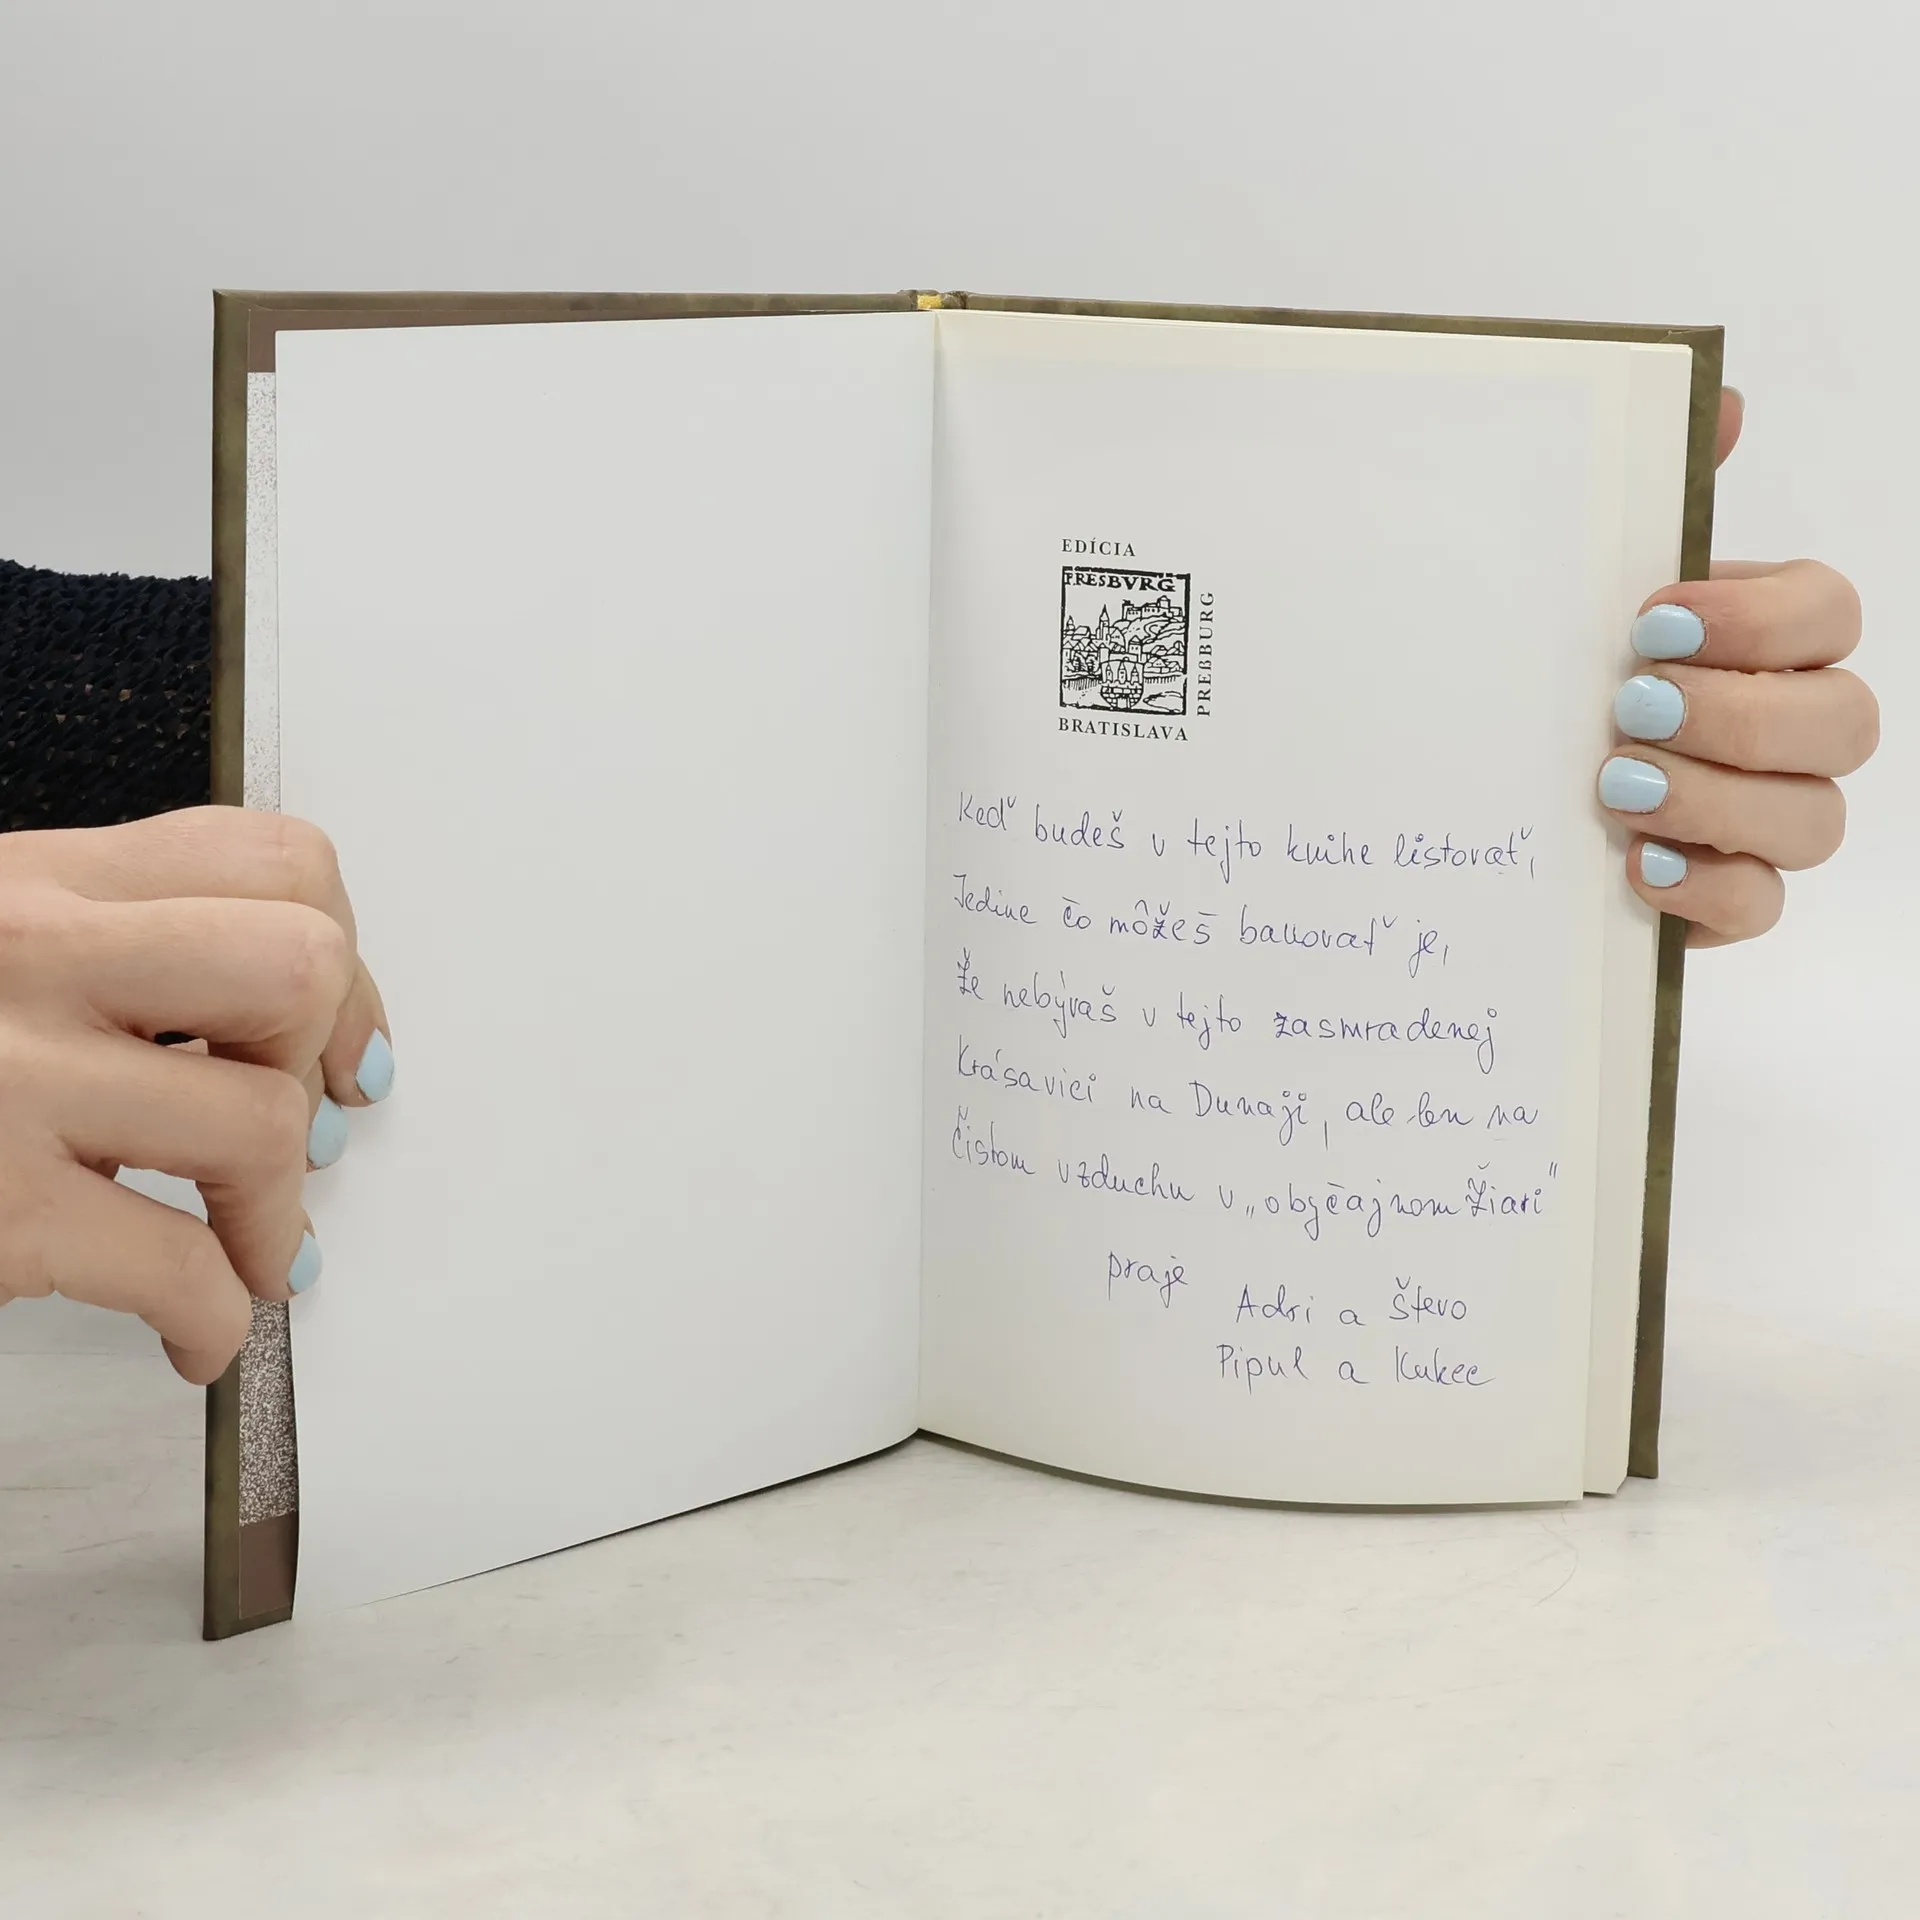 EDÍCIA
PRESBVRG
PREßBURG
BRATISLAVA
Keď budeš v tejto knihe listovať,
Jedine čo môžeš banovať je,
Že nebývaš v tejto zasmradenej
Krásavici na Dunaji, ale len na
Čistom vzduchu v „obyčajnom Žiari"
praje
Adri a Števo
Pipul a Kukec